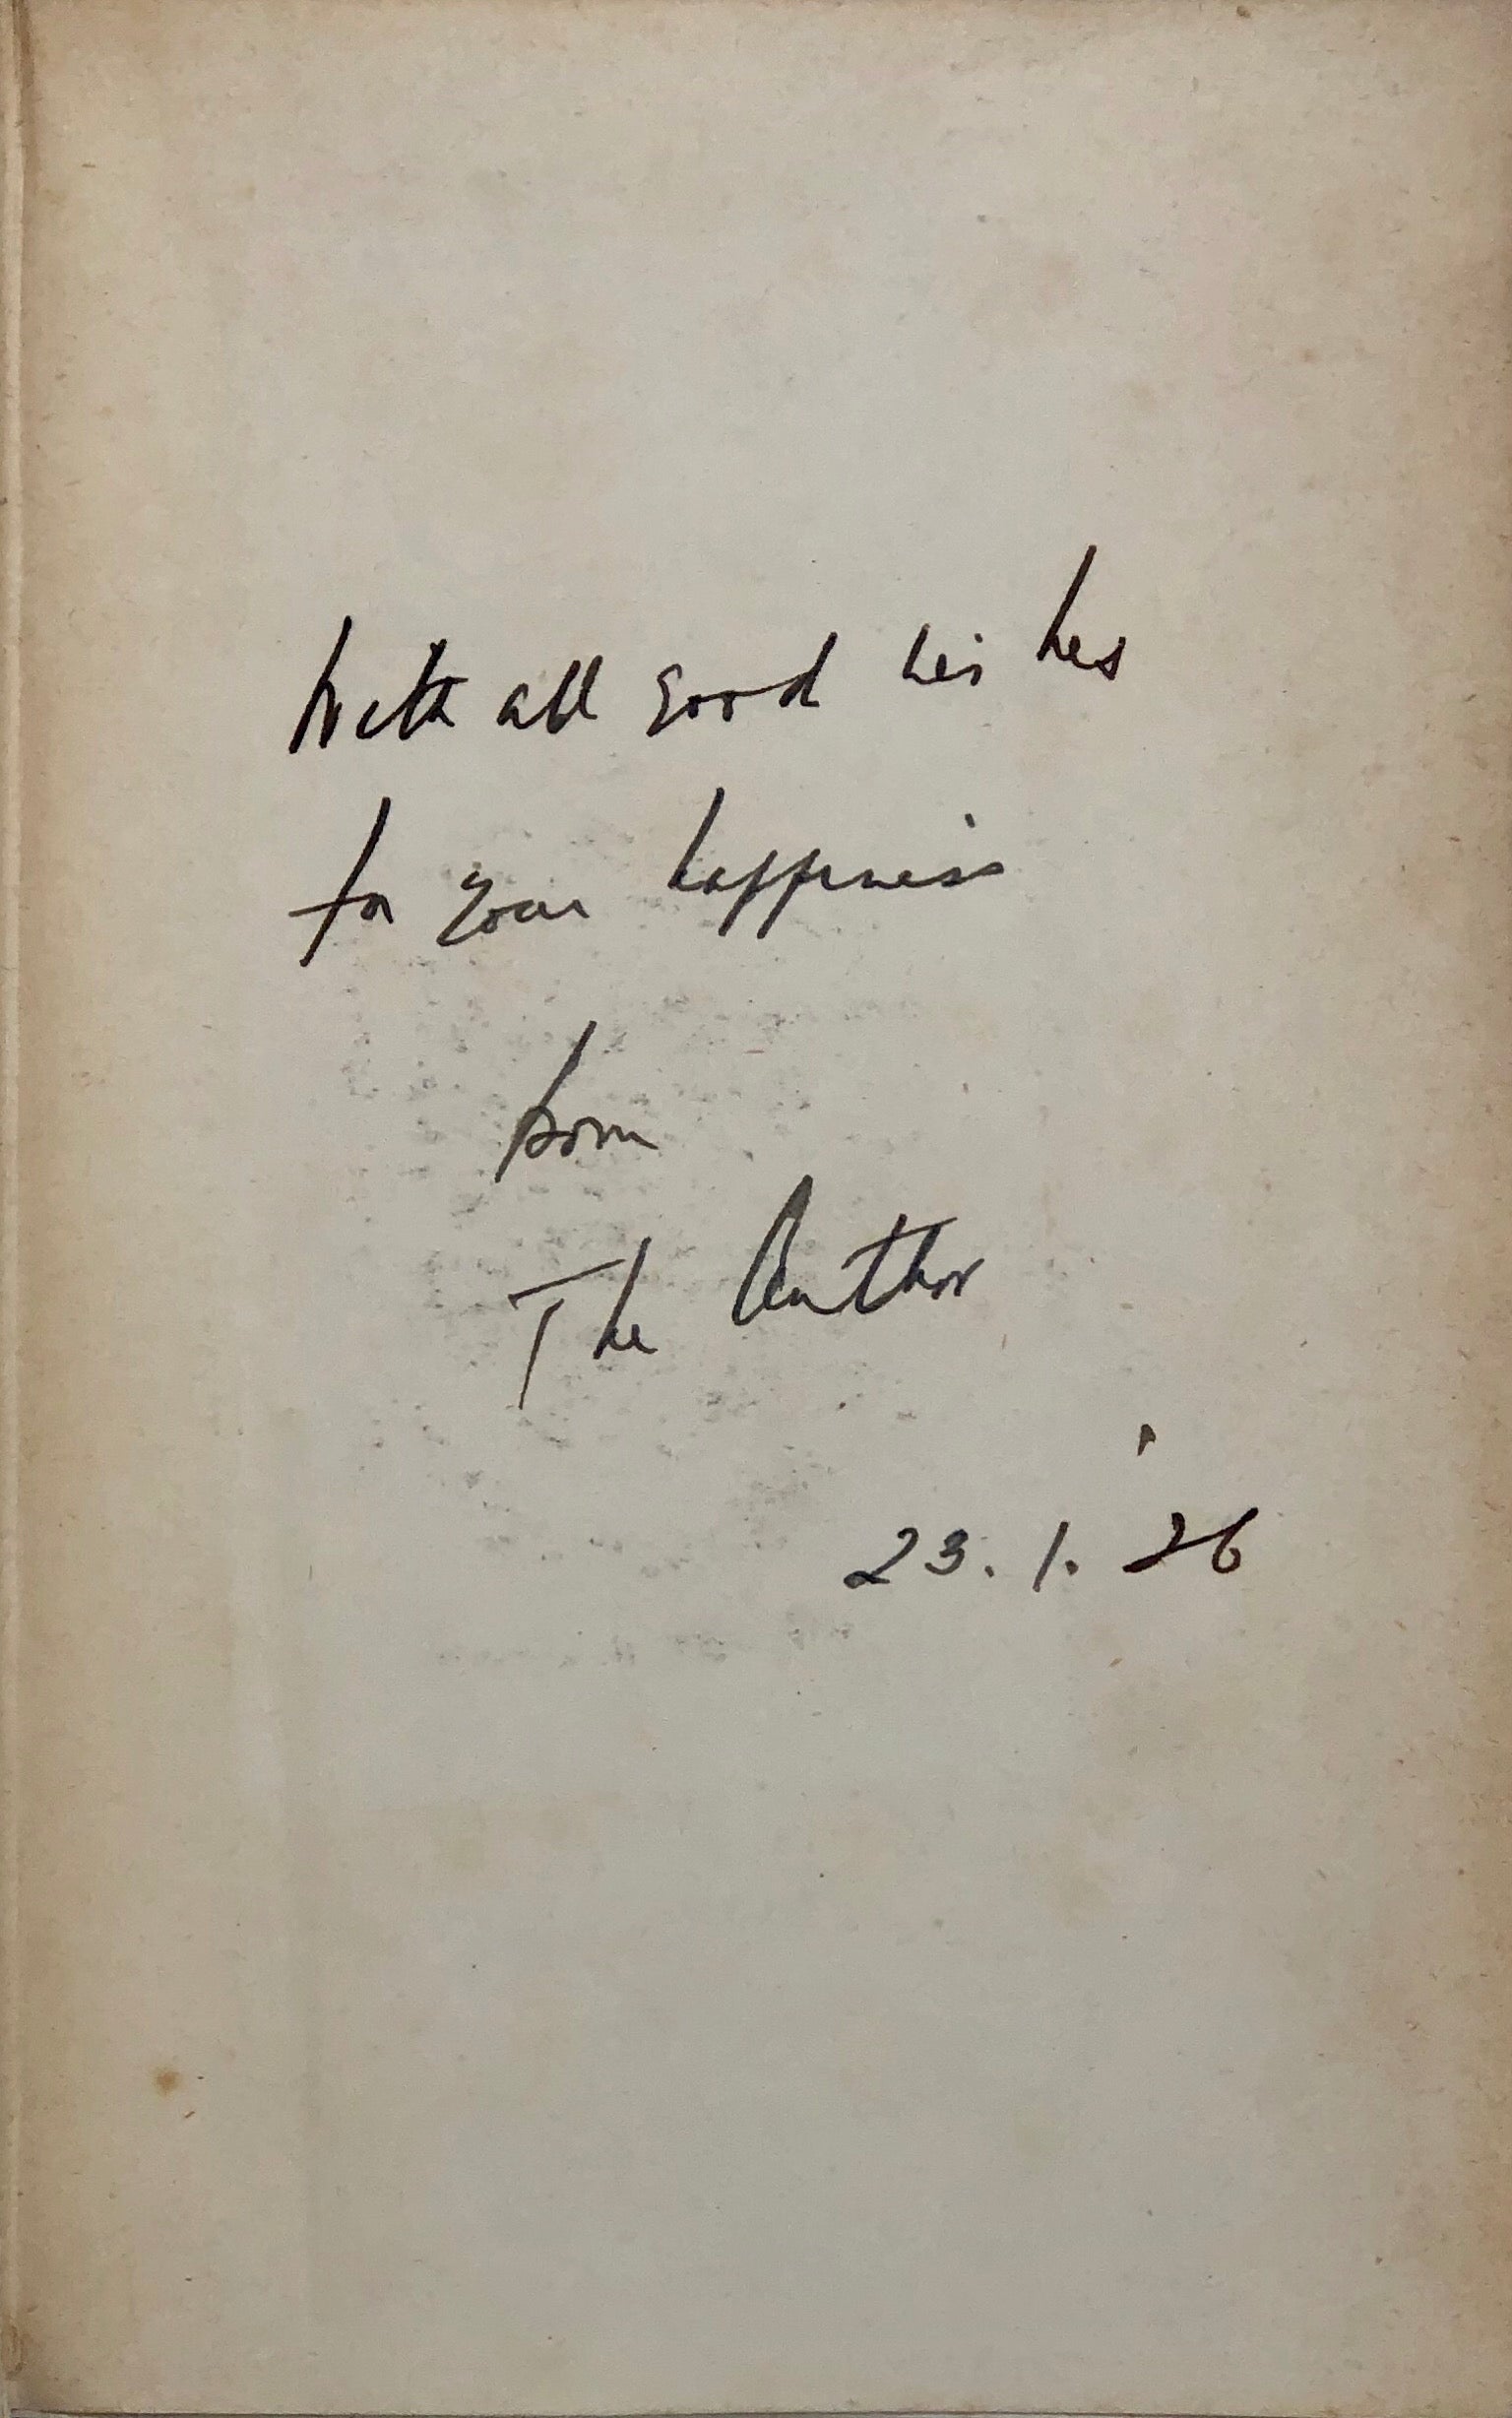 With all good wishes
for your happiness
from
The Author
23.1.26